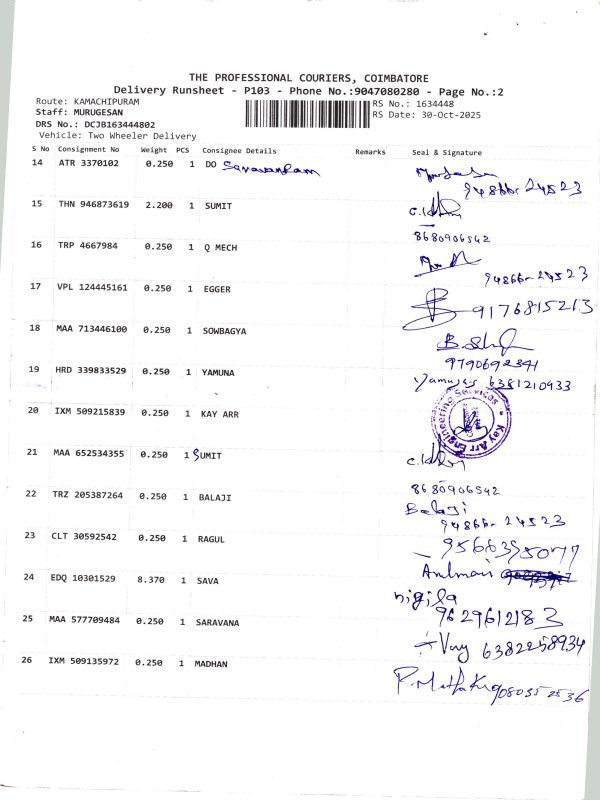 THE PROFESSIONAL COURIERS, COIMBATORE
Delivery Runsheet - P103 - Phone No.:9047080280 - Page No.:2
Route: KAMACHIPURAM
RS No.: 1634448
Staff: MURUGESAN
RS Date: 30-Oct-2025
DRS No.: DCJB163444802
Vehicle: Two Wheeler Delivery
S No Consignment No Weight PCS Consignee Details Remarks Seal & Signature
14 ATR 3370102 0.250 1 DO
94866-24523
15 THN 946873619 2.200 1 SUMIT
8680906542
16 TRP 4667984 0.250 1 Q MECH
94866-24523
17 VPL 124445161 0.250 1 EGGER
9176815213
18 MAA 713446100 0.250 1 SOWBAGYA
9790692341
19 HRD 339833529 0.250 1 YAMUNA
6381210933
20 IXM 509215839 0.250 1 KAY ARR
Kay Arr Engineering Services
21 MAA 652534355 0.250 1 SUMIT
8680906542
22 TRZ 205387264 0.250 1 BALAJI
Balaji
94866-24523
23 CLT 30592542 0.250 1 RAGUL
24 EDQ 10301529 8.370 1 SAVA
nigila
9629612183
25 MAA 577709484 0.250 1 SARAVANA
6382258934
26 IXM 509135972 0.250 1 MADHAN